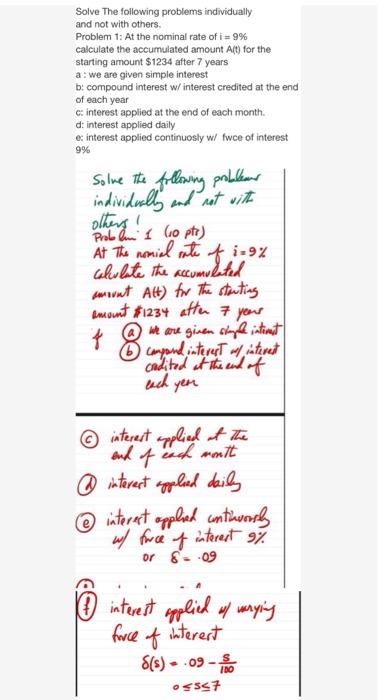 Solve The following problems individually
and not with others.
Problem 1: At the nominal rate of i = 9%
calculate the accumulated amount A(t) for the
starting amount $1234 after 7 years
a : we are given simple interest
b: compound interest w/ interest credited at the end
of each year
c: interest applied at the end of each month.
d: interest applied daily
e: interest applied continuosly w/ fwce of interest
9%
Solve the following problems
individually and not with
others!
Problem 1 (10 pts)
At the nomial rate of i=9%
Calculate the accumulated
amount A(t) for the starting
amount $1234 after 7 years
f (a) we are given simple interest
(b) compound interest w/ interest
credited at the end of
each year
(c) interest applied at the
end of each month
(d) interest applied daily
(e) interest applied continuously
w/ force of interest 9%
or δ = .09
(f) interest applied w/ varying
force of interest
δ(s) = .09 - s/100
0≤s≤7